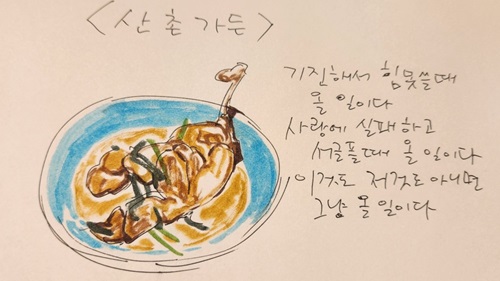 <산촌가든>
기진해서 힘못쓸때
올 일이다
사랑에 실패하고
서글플때 올 일이다
이것도 저것도 아니면
그냥 올 일이다